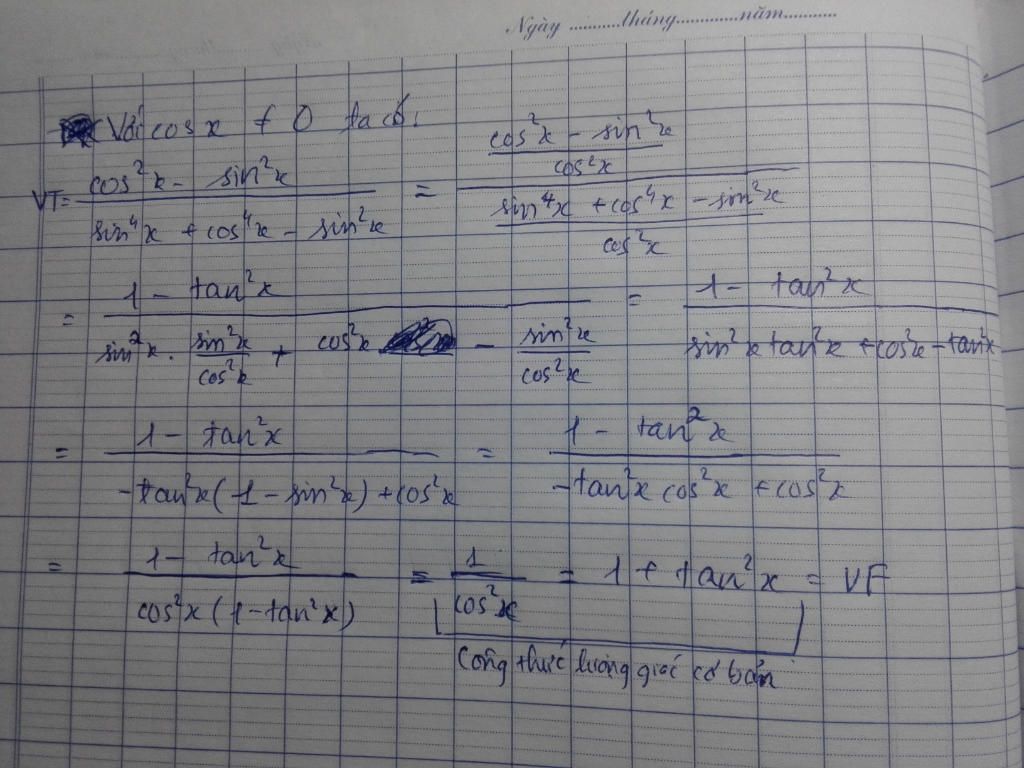 Ngày ...........tháng............năm...........
Với cos x ≠ 0 ta có:
VT = \frac{cos²x - sin²x}{sin⁴x + cos⁴x - sin²x} = \frac{\frac{cos²x - sin²x}{cos²x}}{\frac{sin⁴x + cos⁴x - sin²x}{cos²x}}
= \frac{1 - tan²x}{sin²x . \frac{sin²x}{cos²x} + cos²x - \frac{sin²x}{cos²x}} = \frac{1 - tan²x}{sin²x tan²x + cos²x - tan²x}
= \frac{1 - tan²x}{-tan²x(1 - sin²x) + cos²x} = \frac{1 - tan²x}{-tan²x cos²x + cos²x}
= \frac{1 - tan²x}{cos²x(1 - tan²x)} = \frac{1}{cos²x} = 1 + tan²x = VF
Công thức lượng giác cơ bản